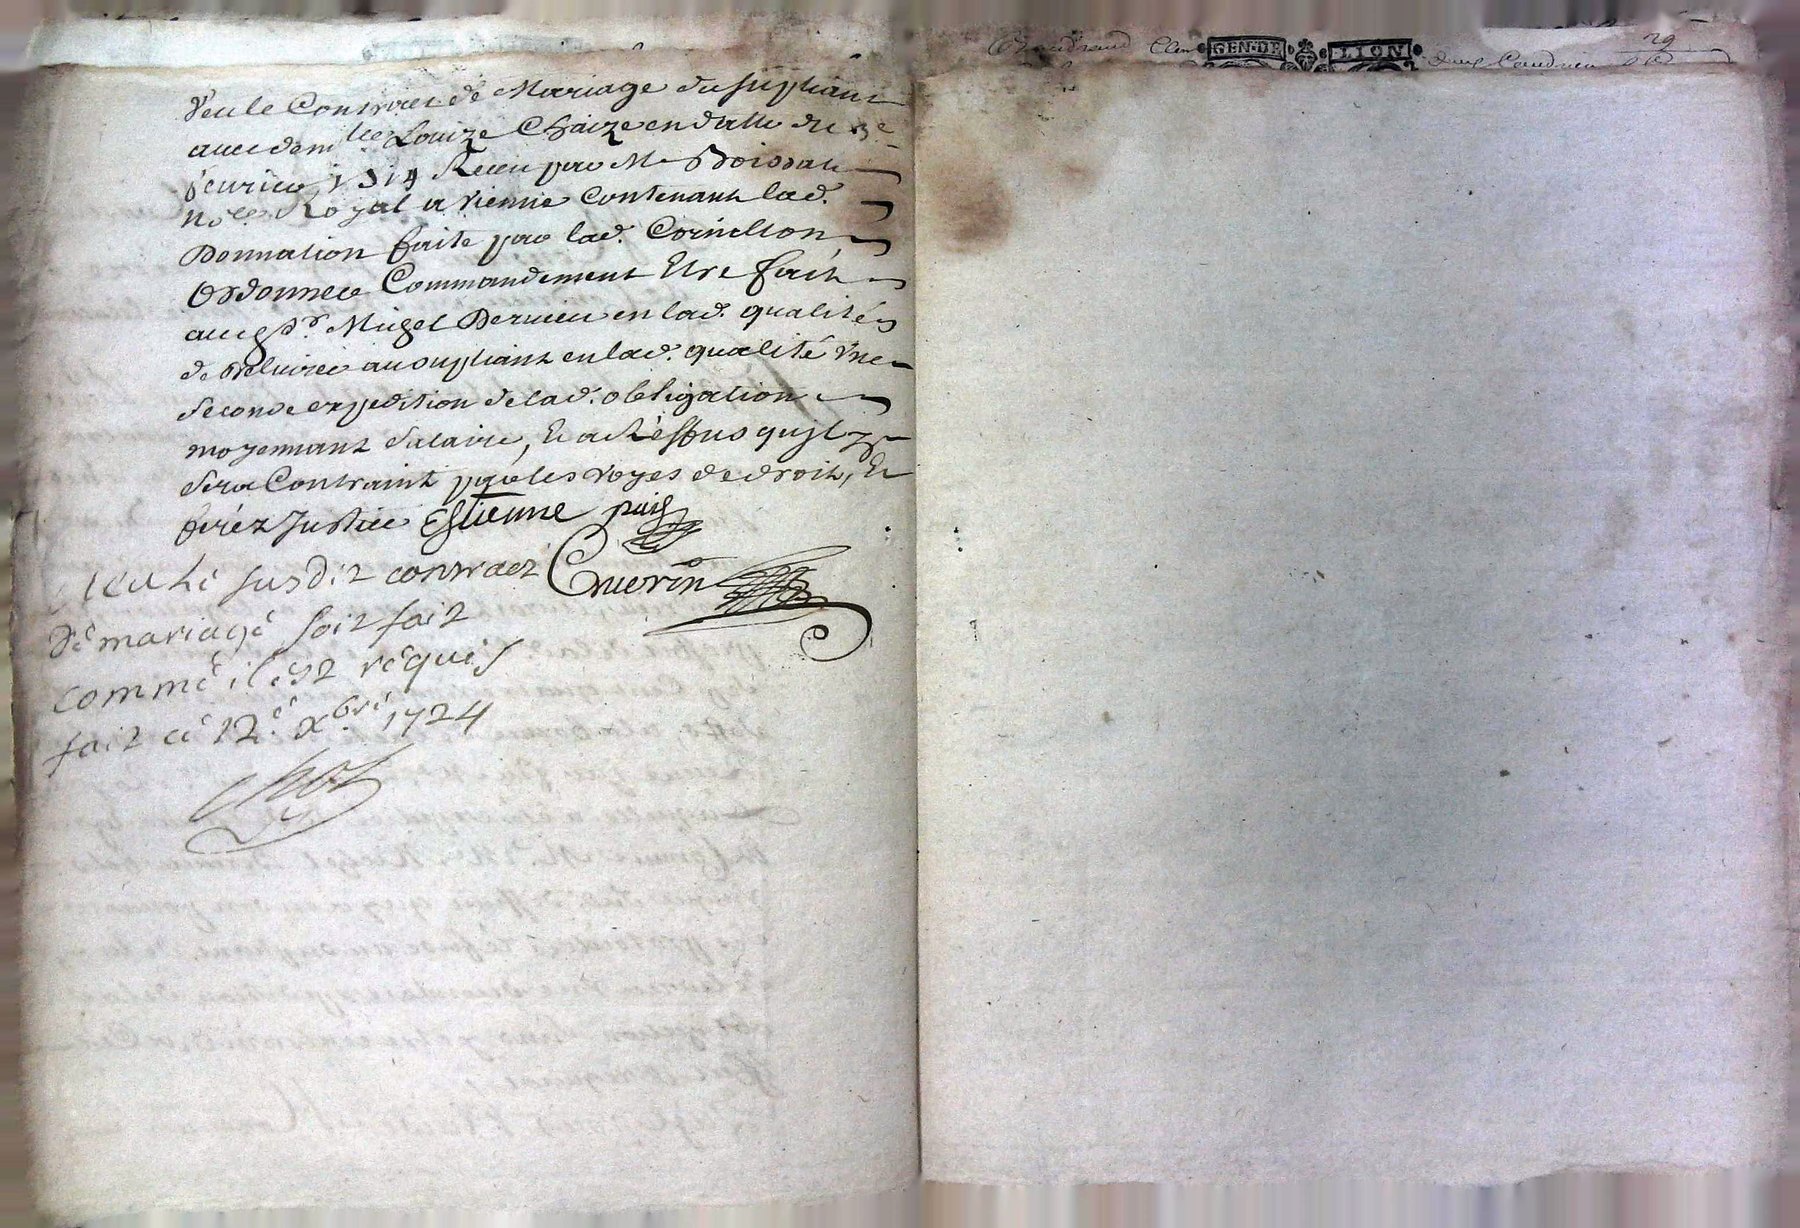 Veu le Contract de Mariage du supliant
avec dem.lle Louize Chaize en datte du 3e
fevrier 1714 Receu par Me Boissat
No.re Royal a Vienne Contenant lad.
Donnation faite par lad. Cornillon
Ordonner Commandement Etre fait
aud. Sr. Mizel Dervieu en lad. qualité
de delivrer au supliant en lad. qualité Une
Seconde expedition de lad. obligation
moyennant salaire, Et a
sera Contraint par les voyes de droit, Et
ferez Justice Estienne puis
Guerin
Veu Le susdit contract
dé mariagé soit fait
commé il est réquis
fait cé 12.é Xbré 1724
GEN·DE LION
29